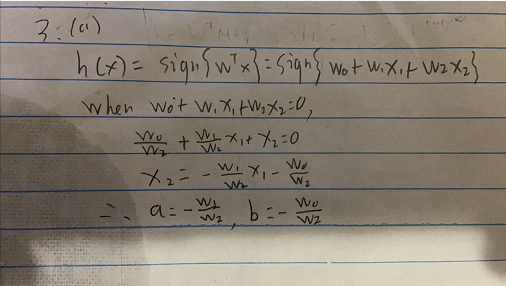 3. (a)
h(x) = sign{wᵀx} = sign{w₀ + w₁x₁ + w₂x₂}
when w₀ + w₁x₁ + w₂x₂ = 0,
w₀/w₂ + w₁/w₂ x₁ + x₂ = 0
x₂ = - w₁/w₂ x₁ - w₀/w₂
∴ a = - w₁/w₂, b = - w₀/w₂